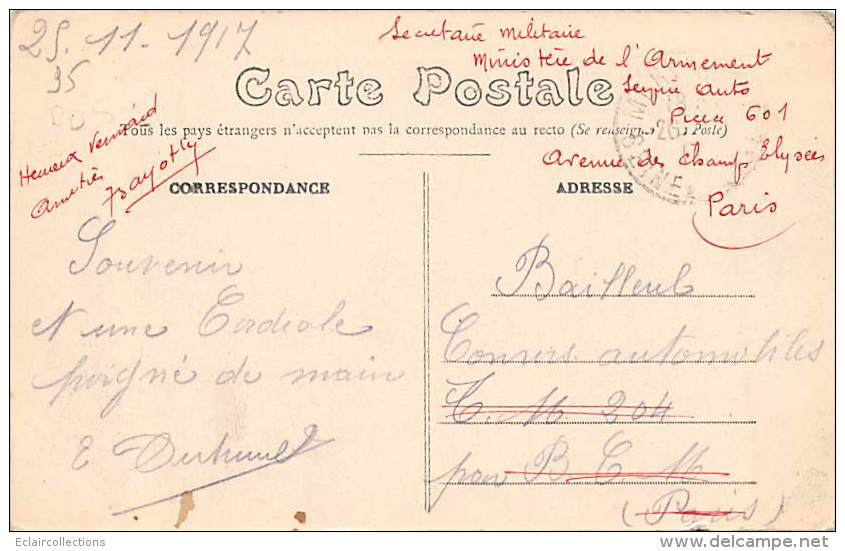 25.11-1917
95
Secretaire Militaire
Ministère de l'Armement
Service Auto
Piece 601
Avenue des Champs Elysées
Paris
Carte Postale
Tous les pays étrangers n'acceptent pas la correspondance au recto (Se renseigner à la Poste)
Amitiés
CORRESPONDANCE
ADRESSE
Souvenir
et une Cordiale
poigné de main
E
Bailleul
Convois automobiles
T. M. 204
par B C M
(Paris)
Eclaircollections
delcampe.net